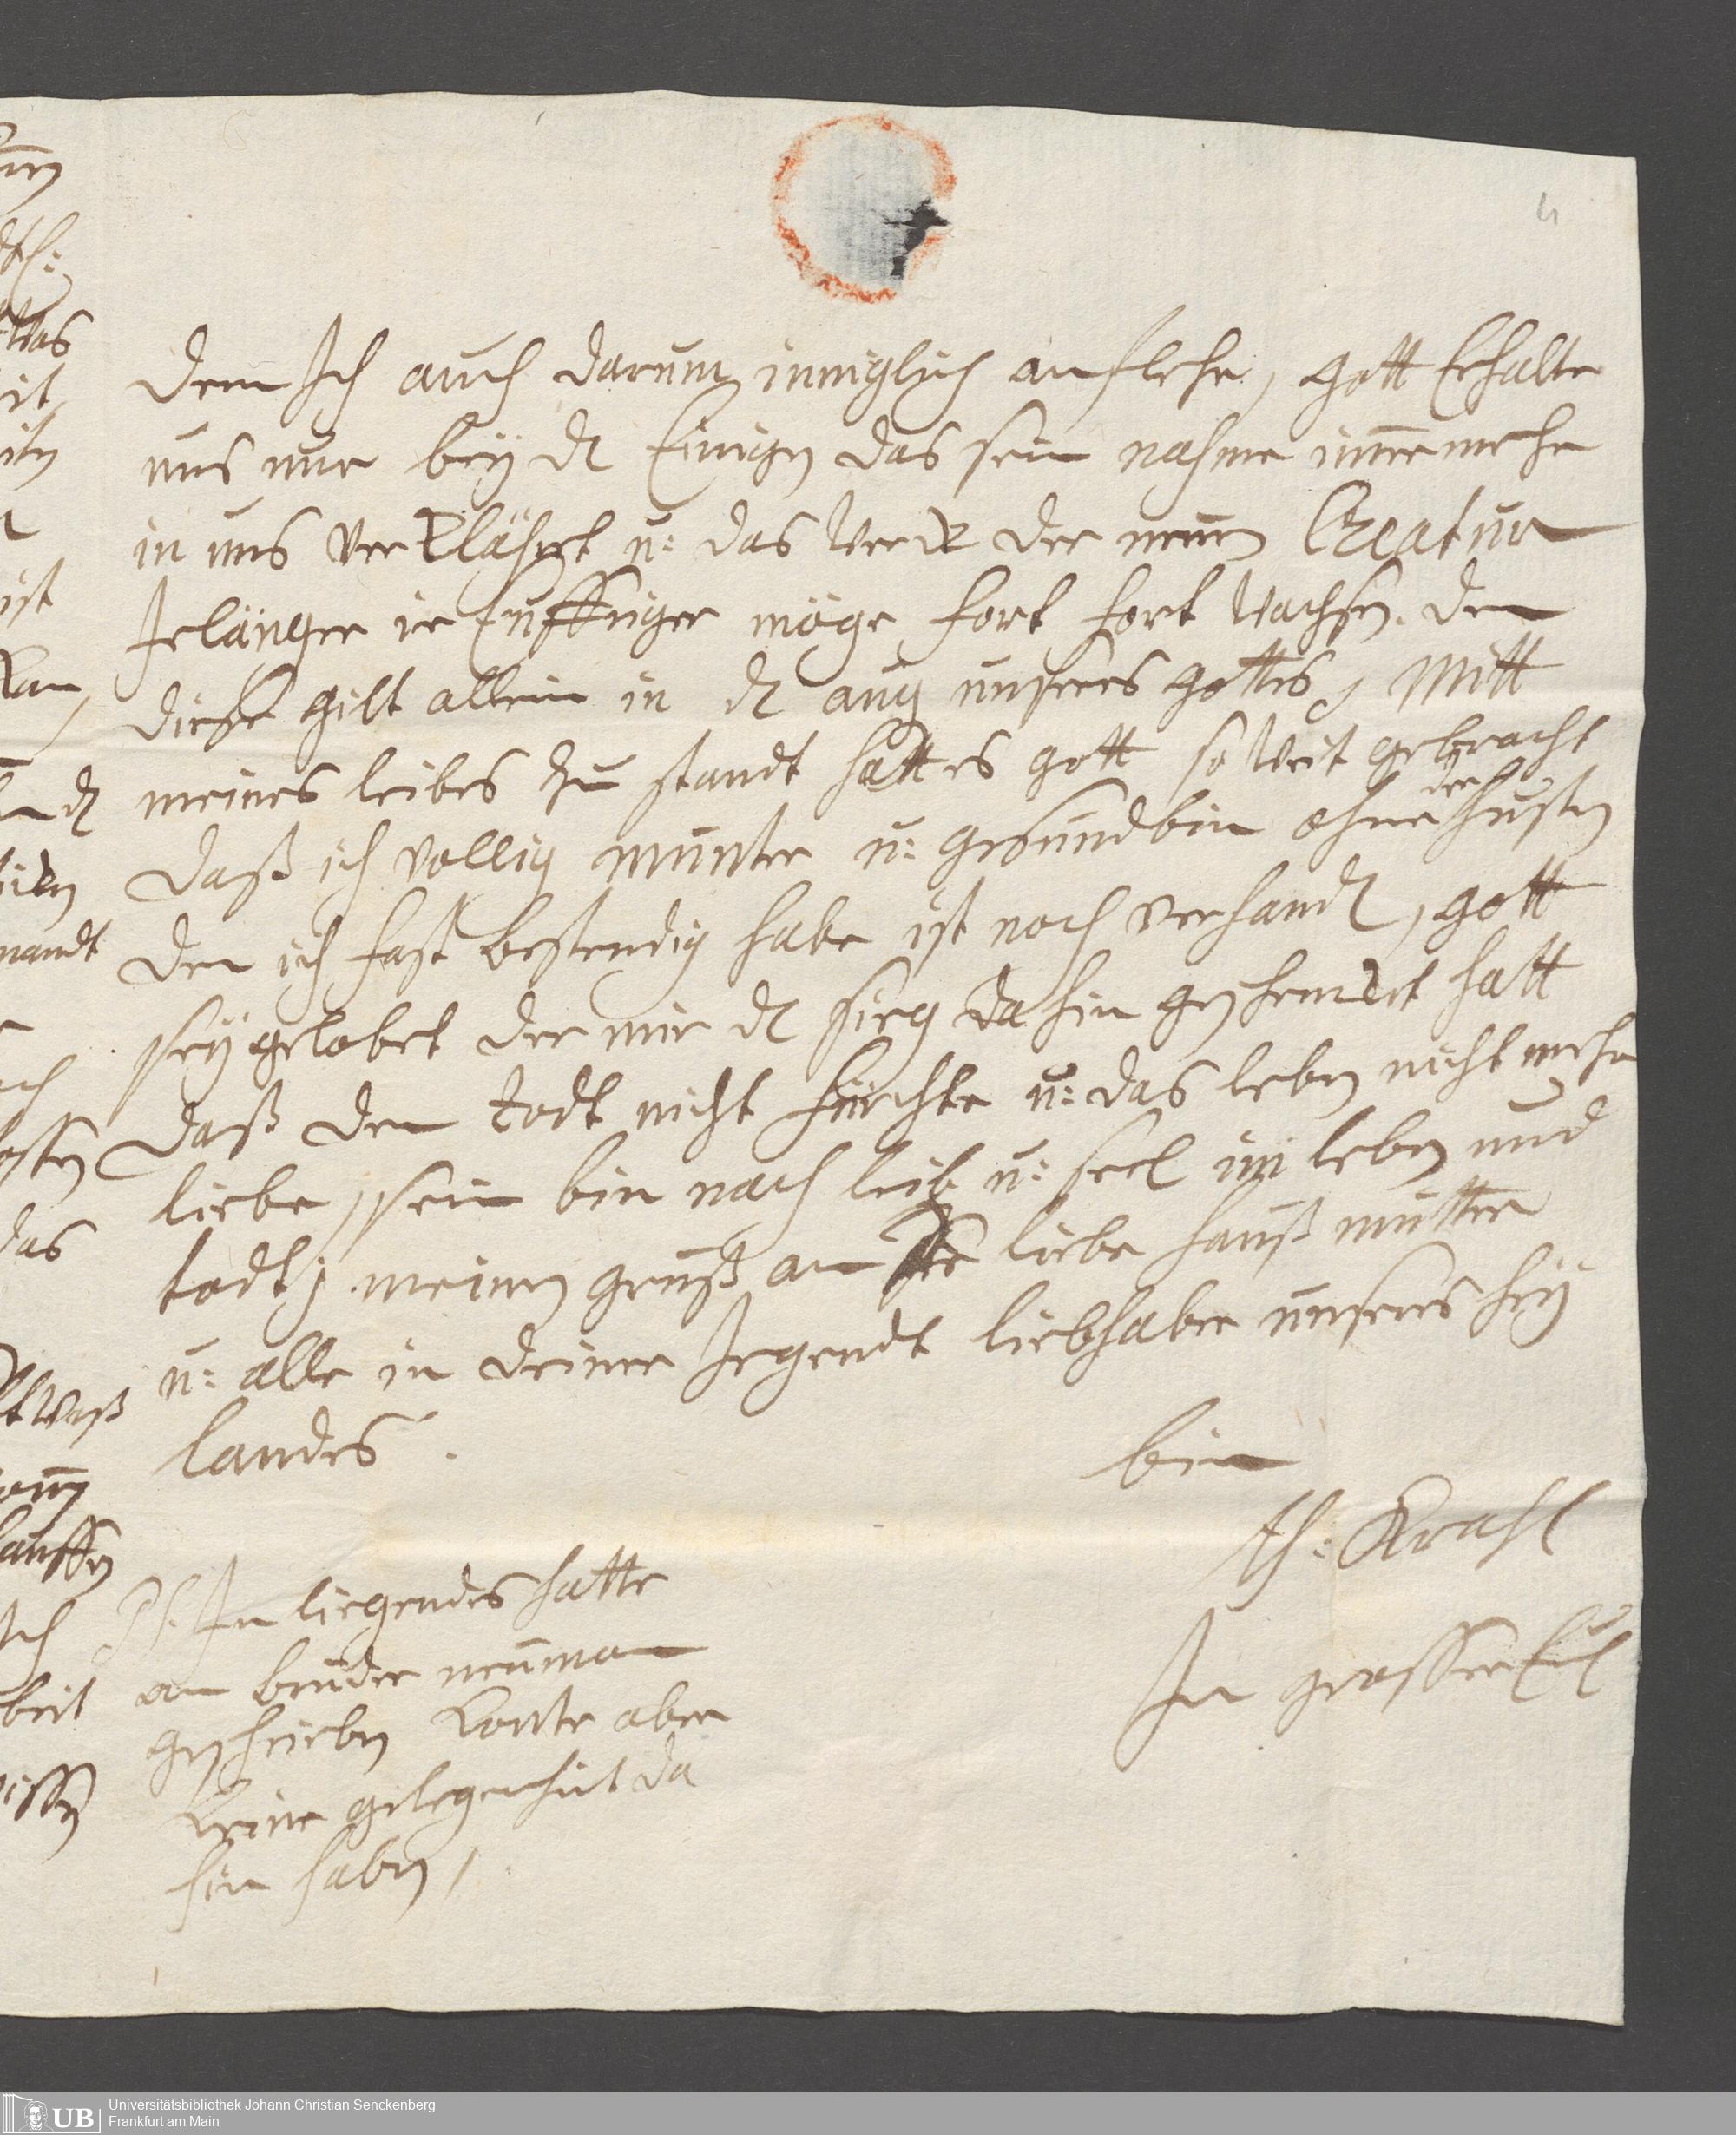 dem Ich auch darum inniglich anflehe, gott Erhalte
uns nur beÿ dem Einigen das sein nahme immermehr
in uns verklährt u: das werck der neuen Creatur
Jelänger ie kräfftiger möge fort fort wachsen. den
diese gilt allein in den augen unseres gottes, Mitt
meines leibes zu standt hatt es gott so weit gebracht
daß ich vollig munter u: gesundt bin ohne der husten
den ich fast bestendig habe ist noch verhanden, gott
seÿ gelobet der mir den sieg dahin geschencket hatt
daß den todt nicht fürchte u: das leben nicht mehr
liebe, sein bin nach leib u: seel im leben und
todt; meinen gruß an die liebe hauß mutter
u: alle in deiner Jegendt liebhaber unseres heÿ
landes.
bin
th: Krahl
In grosser Eil
PS. In liegendes hatte
an bruder neuman
geschrieben konte aber
keine gelegenheit da
hin haben,
Universitätsbibliothek Johann Christian Senckenberg
Frankfurt am Main
UB